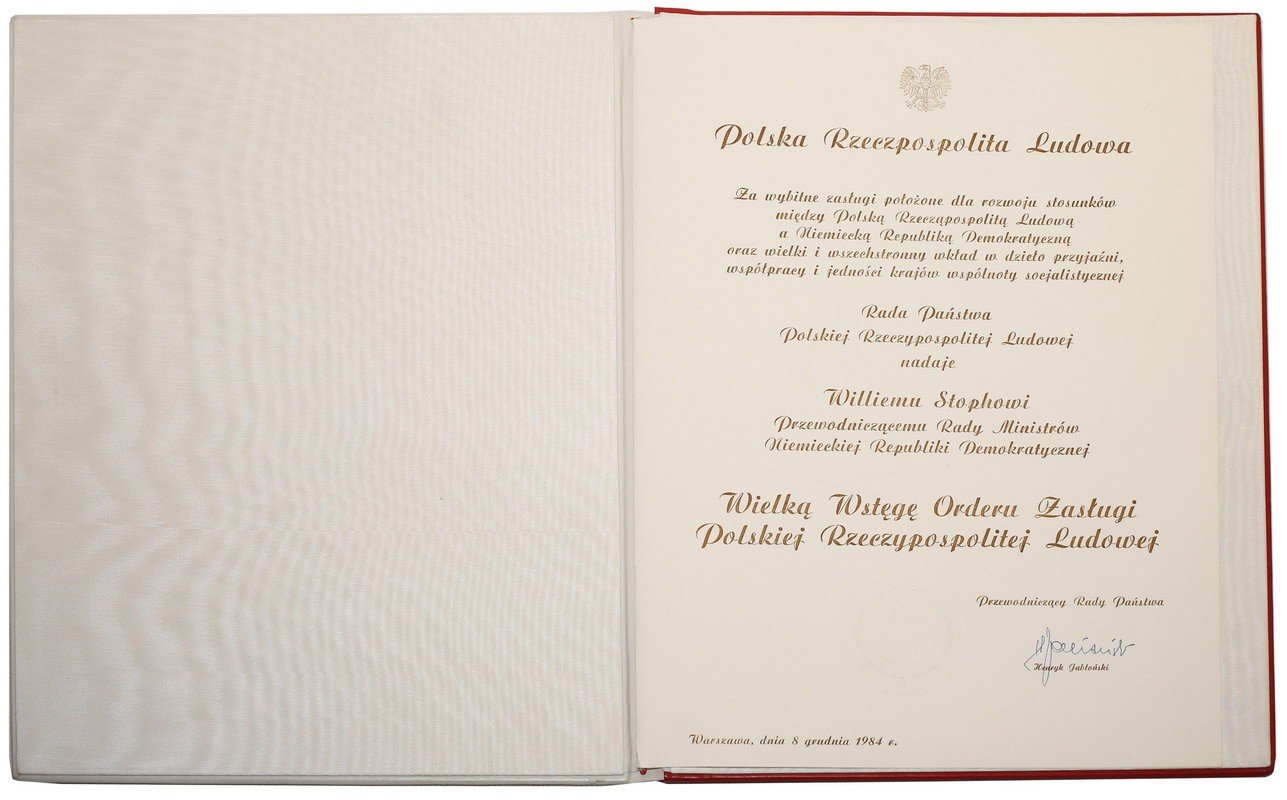 Polska Rzeczpospolita Ludowa
Za wybitne zasługi położone dla rozwoju stosunków
między Polską Rzecząpospolitą Ludową
a Niemiecką Republiką Demokratyczną
oraz wielki i wszechstronny wkład w dzieło przyjaźni,
współpracy i jedności krajów wspólnoty socjalistycznej
Rada Państwa
Polskiej Rzeczypospolitej Ludowej
nadaje
Williemu Stophowi
Przewodniczącemu Rady Ministrów
Niemieckiej Republiki Demokratycznej
Wielką Wstęgę Orderu Zasługi
Polskiej Rzeczypospolitej Ludowej
Przewodniczący Rady Państwa
Henryk Jabłoński
Warszawa, dnia 8 grudnia 1984 r.